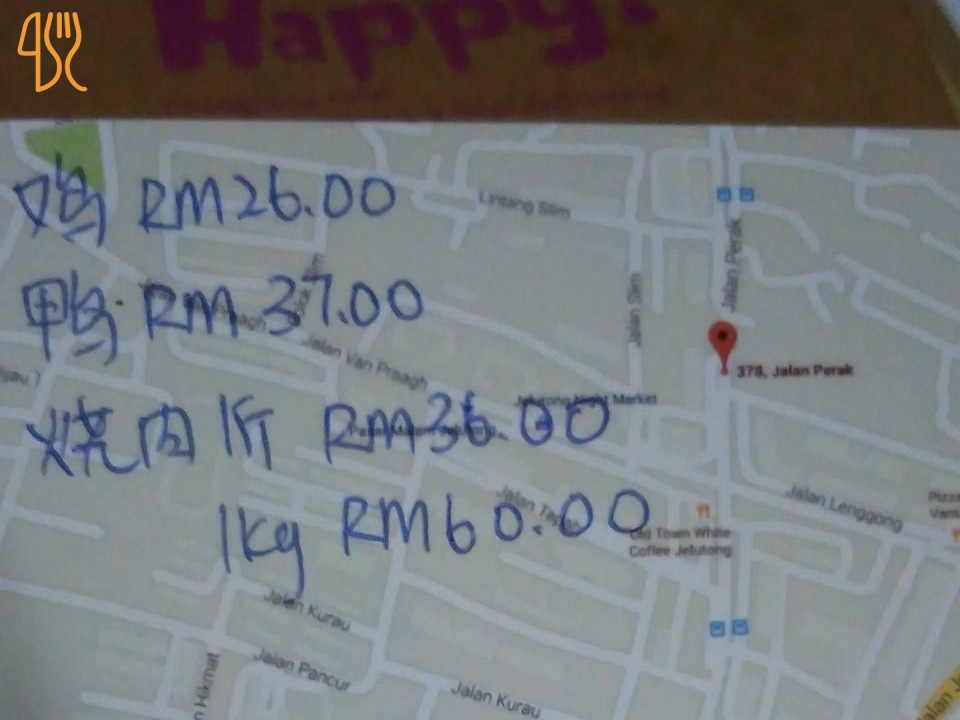 Happy!
鸡 RM26.00
Lintang Slim
Jalan Perak
鸭 RM 37.00
Jalan Slim
Jalan Van Praagh
378, Jalan Perak
Jelutong Night Market
烧肉 1斤 RM36.00
Jalan Lenggong
1kg RM60.00
Old Town White
Coffee Jelutong
Jalan Kurau
Jalan Pancur
Jalan Kurau